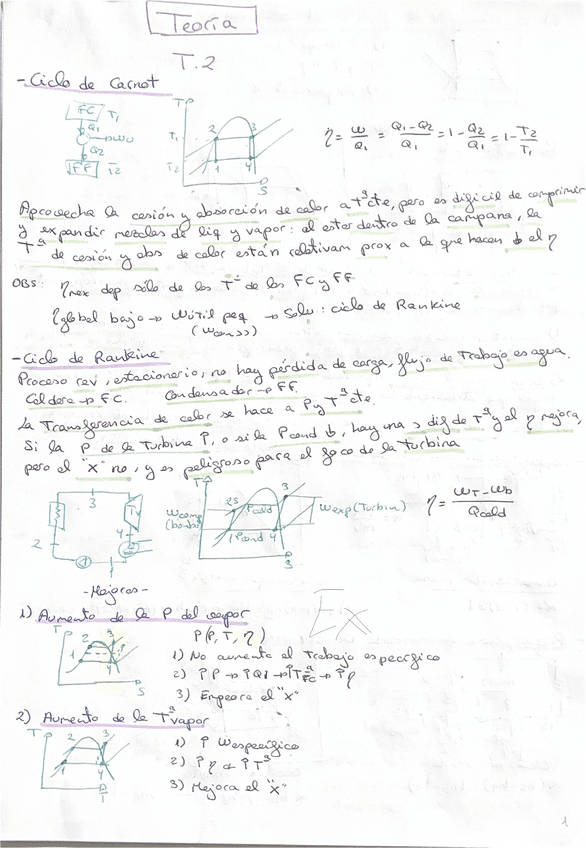 Teoría
T.2
- Ciclo de Carnot
FC T1
Q1
Q2
FF T2
T
T1
T2
2 3
1 4
S
η = W/Q1 = Q1-Q2/Q1 = 1 - Q2/Q1 = 1 - T2/T1
Aprovecha la cesión y absorción de calor a Tª cte, pero es dificil de comprimir
y expandir mezclas de liq y vapor: al estar dentro de la campana, la
Tª de cesión y abs de calor están relativam prox a la que hacen ↓ el η
OBS: ηmax dep sólo de las Tª de los FC y FF
ηglobal bajo → Wútil peq → Solu: ciclo de Rankine
- Ciclo de Rankine
Proceso rev, estacionario, no hay pérdida de carga, flujo de trabajo es agua.
Caldera → FC. Condensador → FF.
La transferencia de calor se hace a P y Tª cte.
Si la P de la turbina ↑, o si la Pcond ↓, hay una > dif de Tª y el η mejora,
pero el "x" no, y es peligroso para el foco de la turbina
3
2
4
1
T
Wcomp
(bomba)
2S
Pcald
3
1 Pcond 4
S
Wexp (Turbina)
η = WT - Wb / Qcald
- Mejoras -
1) Aumento de la P del vapor
Ex
T
2 3
1 4
S
P(P, T, η)
1) No aumenta el trabajo específico
2) ↑P → ↑Q1 → ↑TªFC → ↑η
3) Empeora el "x"
2) Aumento de la Tª vapor
T
2 3
1 4
1) ↑ Wespecífico
2) ↑η a ↑Tª
3) Mejora el "x"
1